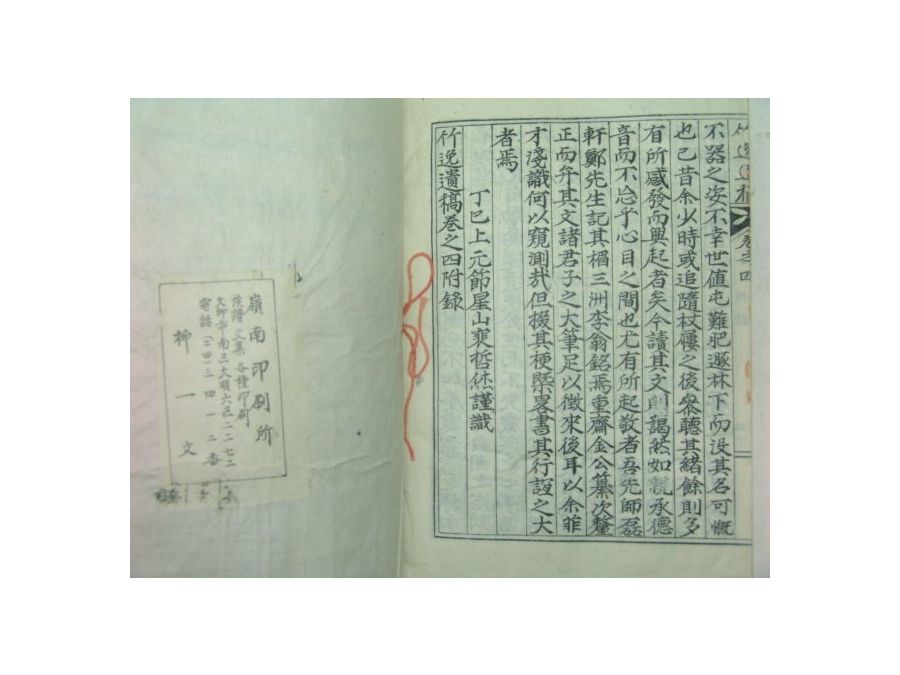 竹逸遺稿 卷之四
不器之姿不幸世値屯難肥遯林下而没其名可慨
也已昔余少時或追隨杖屨之後叅聽其緖餘則多
有所感發而興起者矣今讀其文則謁然如親承德
音而不忘乎心目之間也尤有所起敬者吾先師磊
軒鄭先生記其楣三洲李翁銘焉重齋金公纂次釐
正而弁其文諸君子之大筆足以徵來後耳以余菲
才淺識何以窺測㢤但掇其梗槩畧書其行誼之大
者焉
丁巳上元節星山裵哲烋謹識
竹逸遺稿卷之四附錄
嶺南印刷所
族譜 文集 各種印刷
大邱市南三大明六区二二七二
電話(二四)三四一二番
柳一文